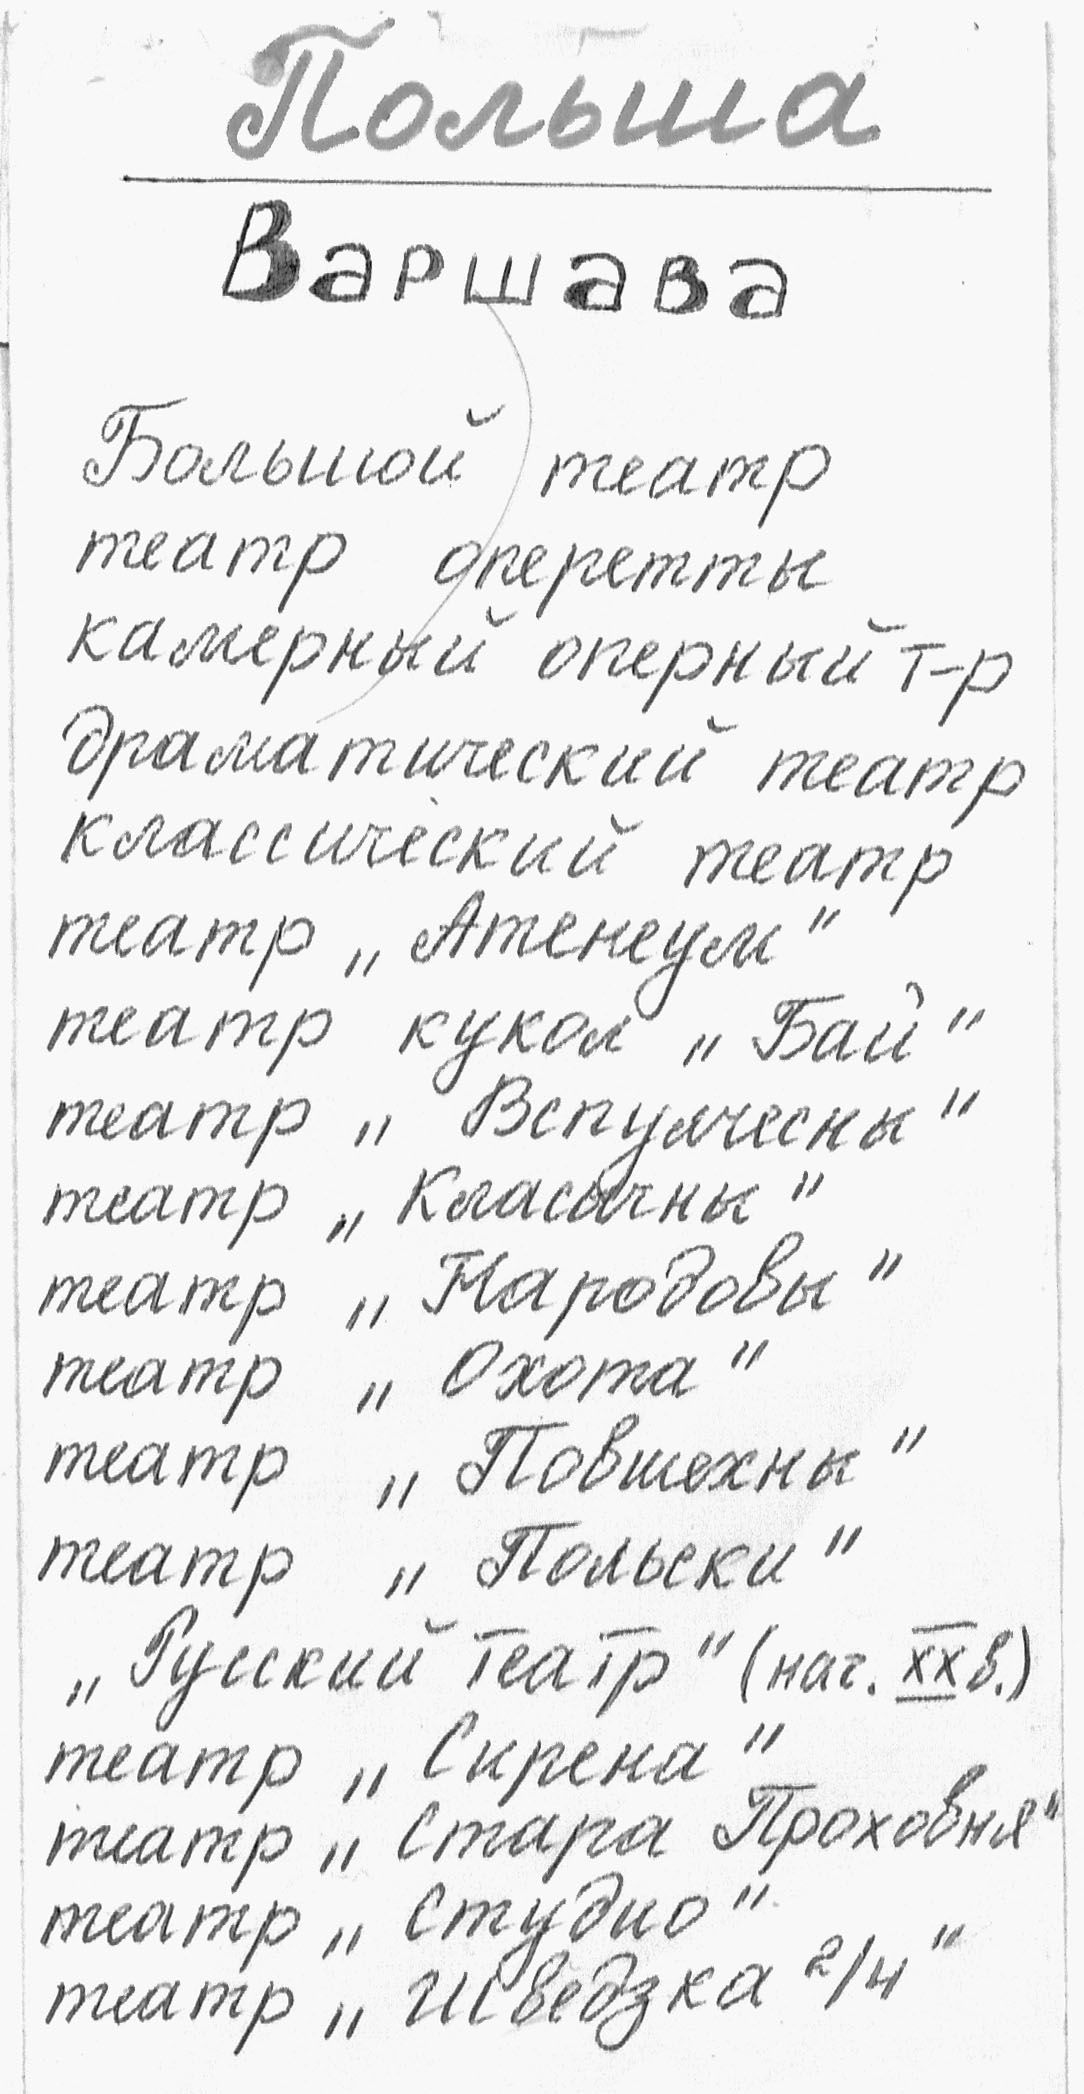 Польша
Варшава
Большой театр
театр оперетты
камерный оперный т-р
драматический театр
классический театр
театр „Атенеум"
театр кукол „Бай"
театр „Вспулчесны"
театр „Класычны"
театр „Народовы"
театр „Охота"
театр „Повшехны"
театр „Польски"
„Русский театр" (нач. XX в.)
театр „Сирена"
театр „Стара Проховня"
театр „Студио"
театр „Шведзка 2/4"